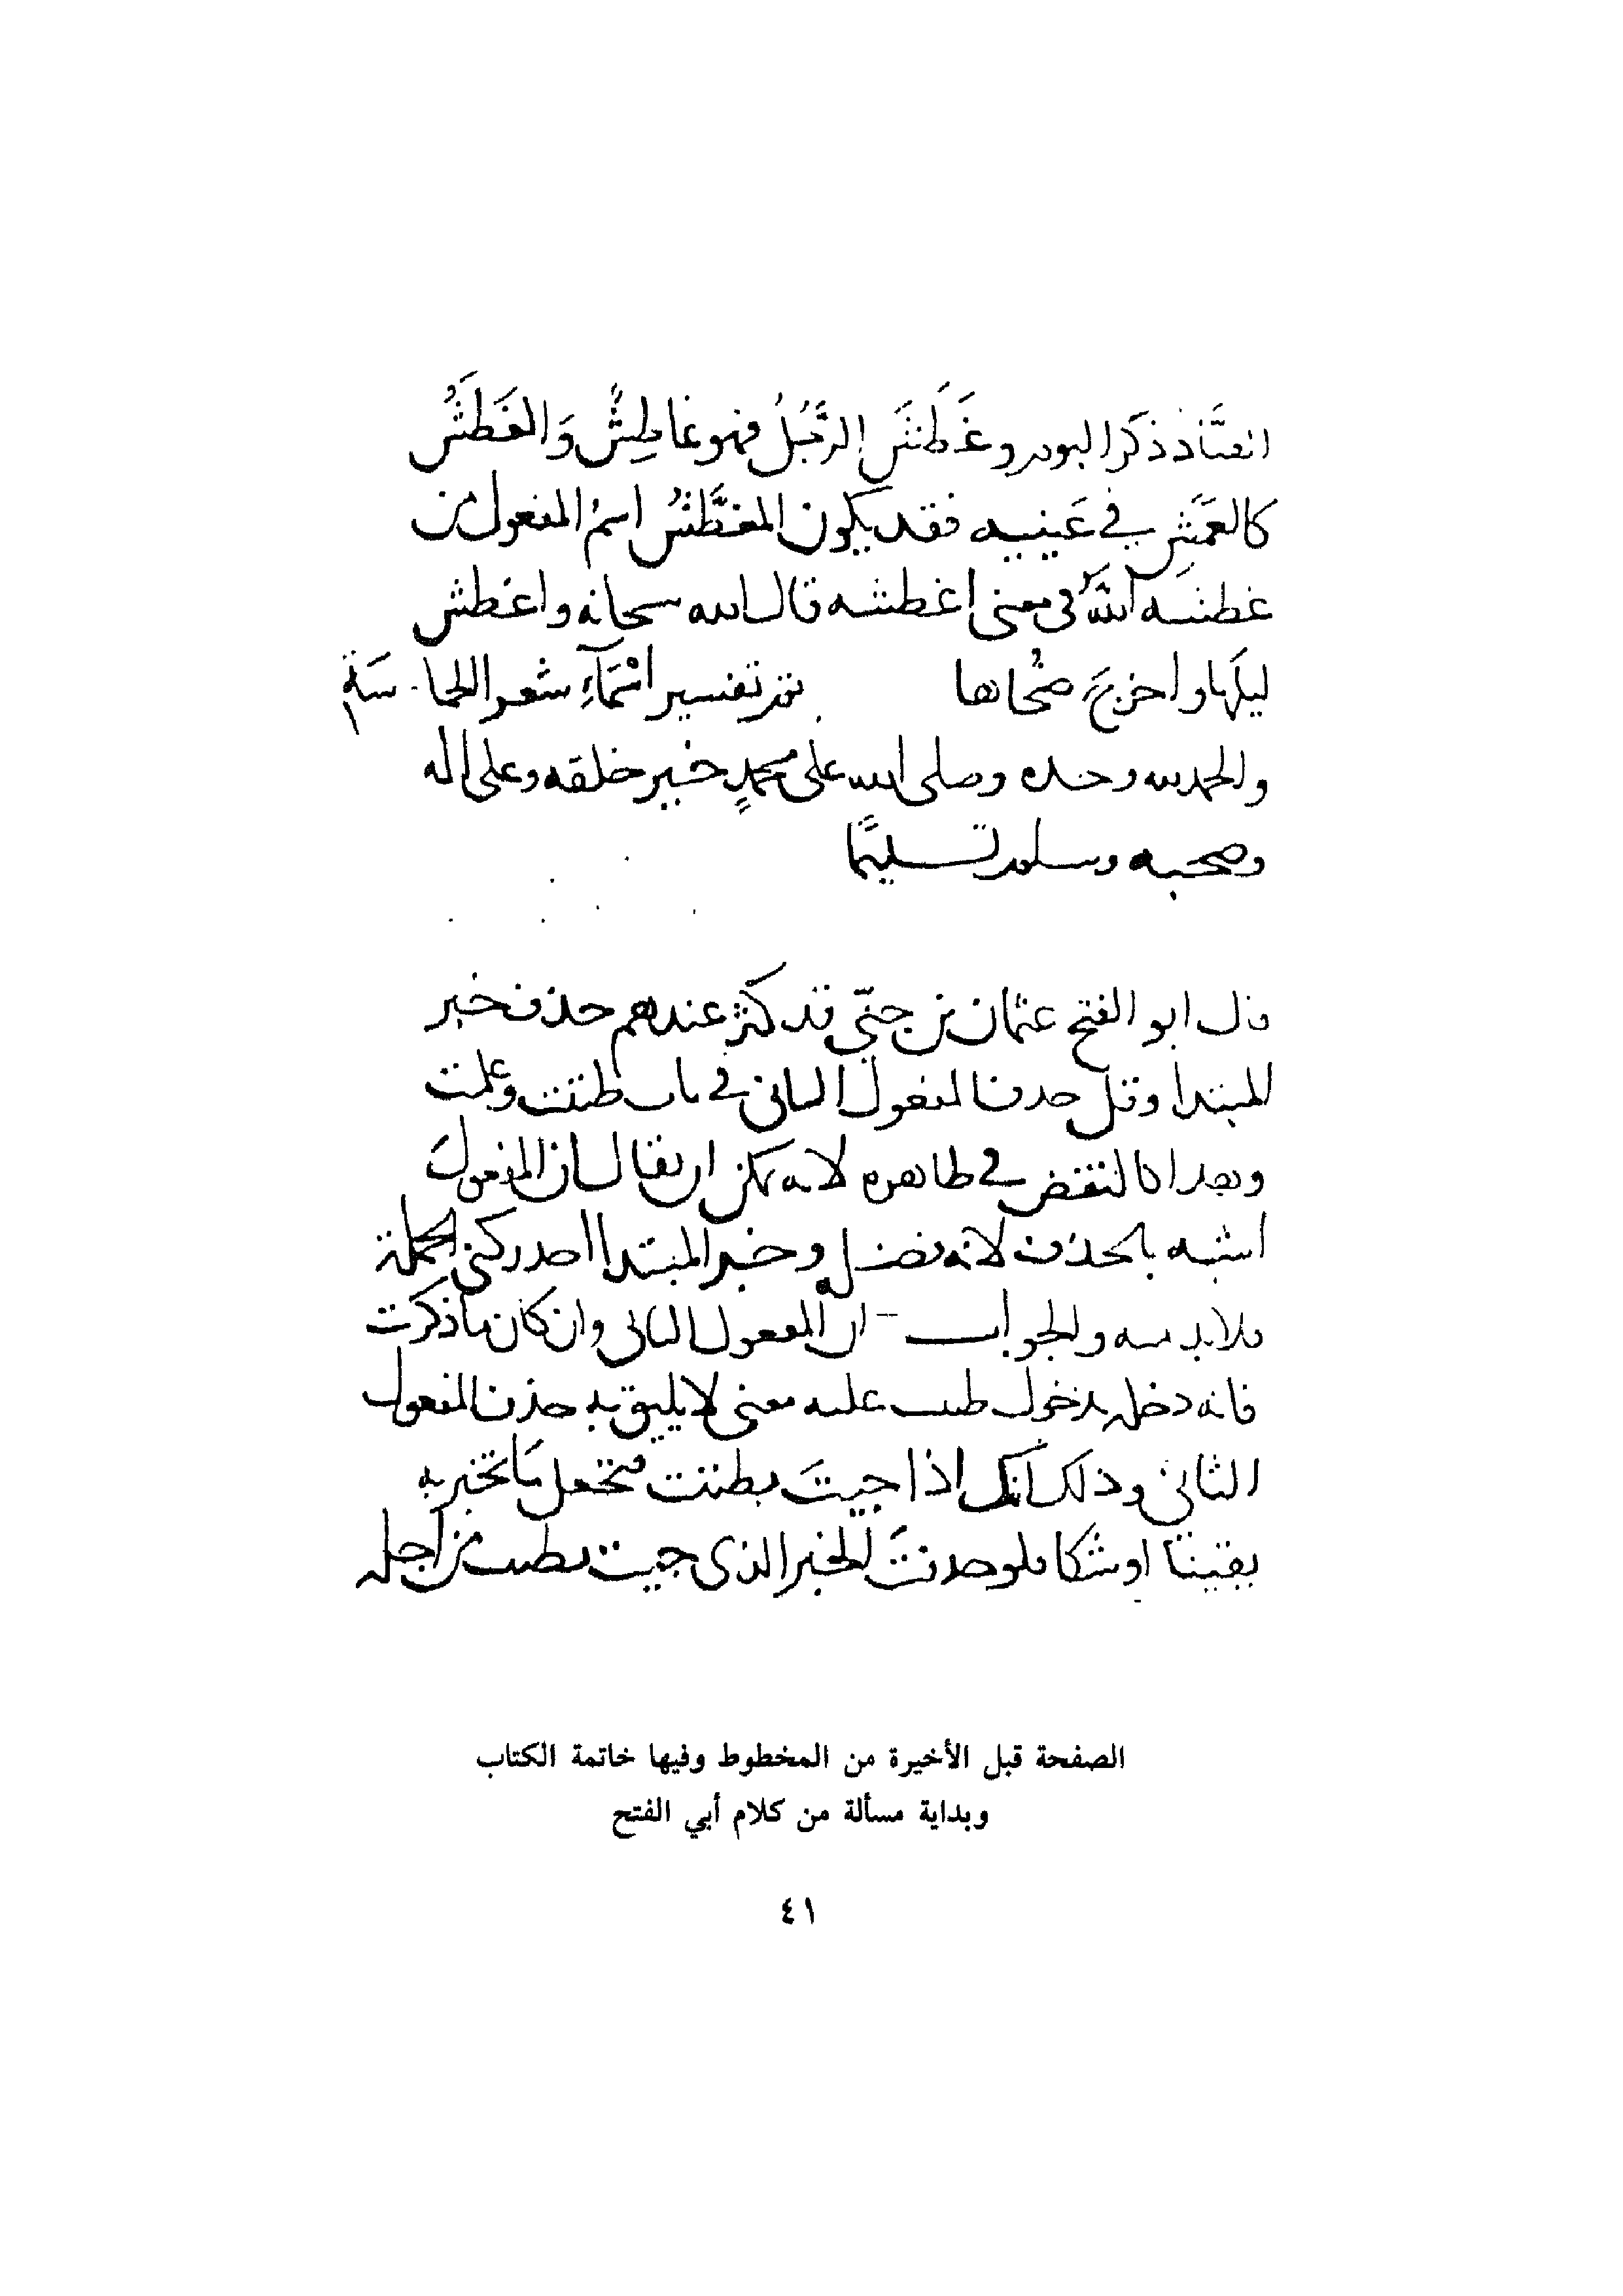 وغَطَشَ الرَّجُلُ فهو غاطِشٌ وَالغَطَشُ
كالعَمَشِ في عَينيه فقد يكون المغطَّشُ اسمُ المفعول من
غطشه اللهُ في معنى اغطشه قال الله سبحانه واغطش
ليلَها واخرجَ ضُحاها تفسير اسْمَآءِ شعر الحماسَة
والحمد لله وحده وصلى الله على محمدٍ خير خلقه وعلى اله
وصحبه وسلم تسليمًا
قال ابو الفتح عثمان بن جنّي قد كثر عندهم حذف خبر
المبتدا وقل حذف المفعول الثاني في باب ظننت وعلمت
وهذا كالنقض في ظاهره لانه يمكن ان يقال ان المفعول
اشبه بالحذف لانه فضله وخبر المبتدا احد ركني الجملة
فلا بد منه والجواب ان المفعول الثاني وان كان ما ذكرت
فانه دخله بدخول ظننت عليه معنى لا يليق به حذف المفعول
الثاني وذلك انك اذا جيتَ بظننت لتجعل مَا تخبر به
يقينًا او شكا فلو حذفتَ الخبر الذي جيت بظننت من اجله
الصفحة قبل الأخيرة من المخطوط وفيها خاتمة الكتاب
وبداية مسألة من كلام أبي الفتح
٤١